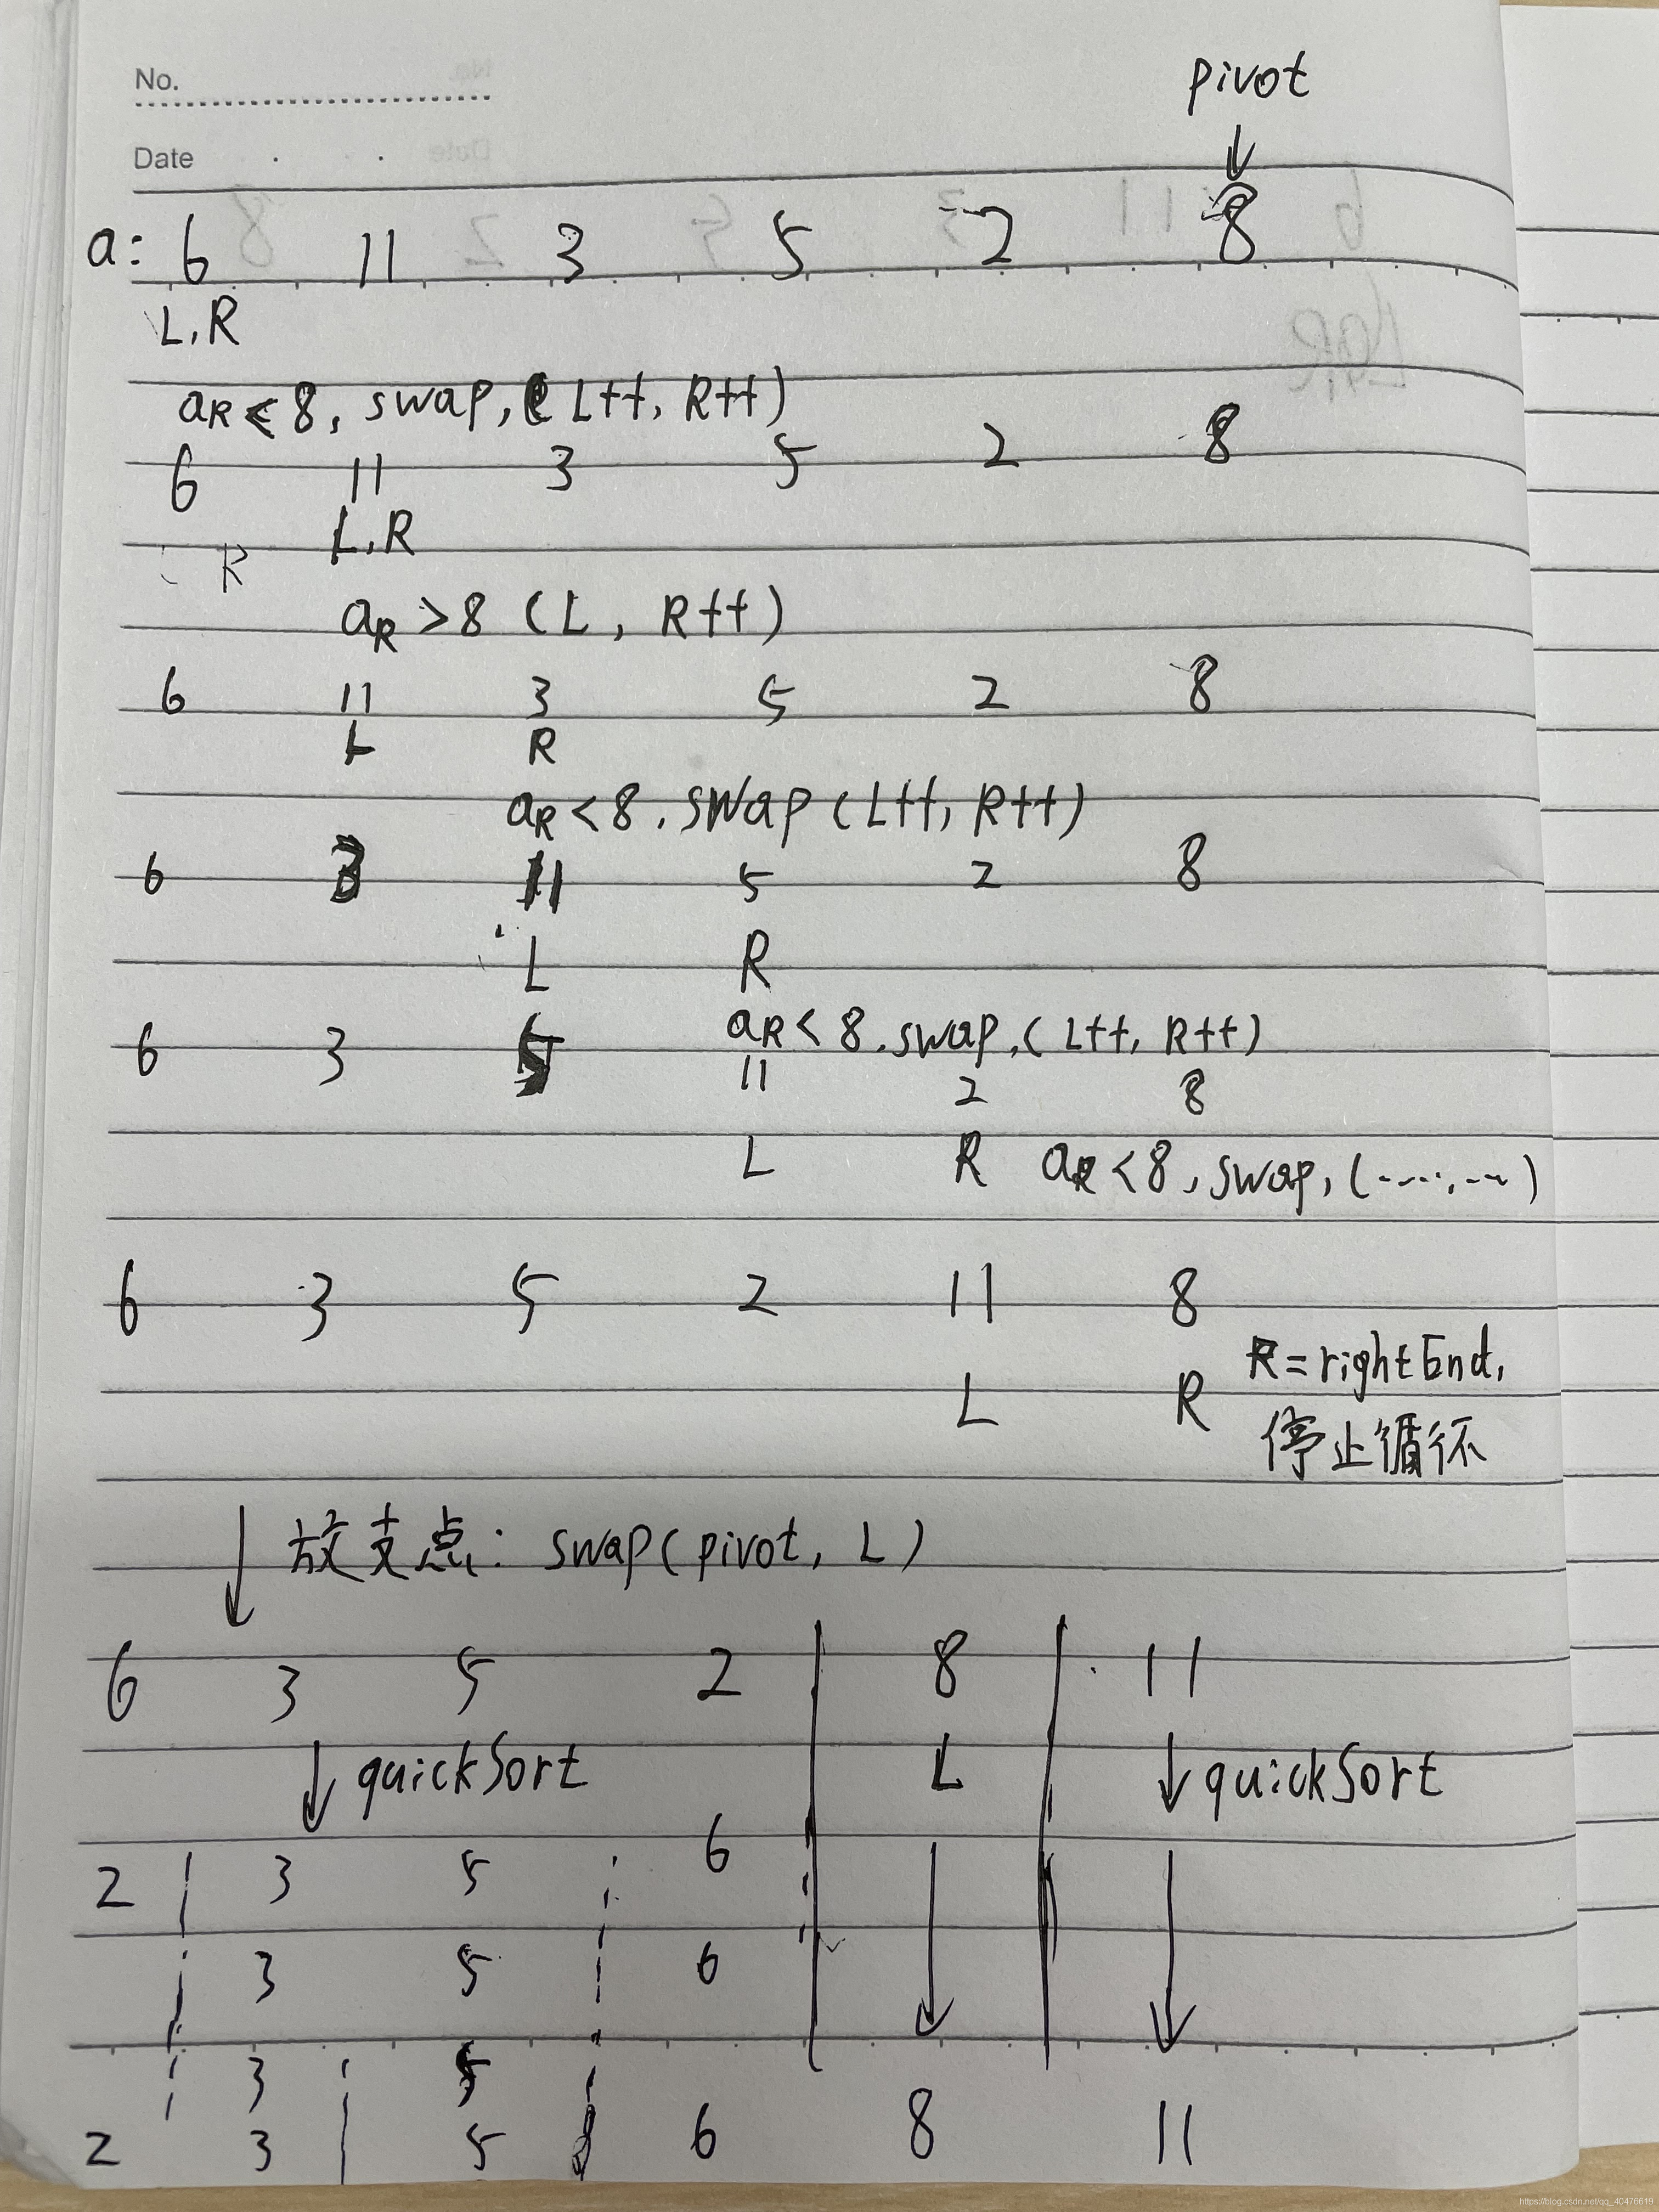 No.
Date
pivot
a: 6 11 3 5 2 8
L,R
aR ≤ 8, swap, (L++, R++)
6 11 3 5 2 8
L,R
R
aR > 8 (L, R++)
6 11 3 5 2 8
L R
aR < 8, swap (L++, R++)
6 3 11 5 2 8
L R
aR < 8, swap, (L++, R++)
6 3 5 11 2 8
L R aR < 8, swap, (....,...)
6 3 5 2 11 8
L R R=rightEnd,
停止循环
放支点: swap(pivot, L)
6 3 5 2 8 11
quickSort L quickSort
2 3 5 6
3 5 6
3 5
2 3 5 6 8 11
https://blog.csdn.net/qq_40476619